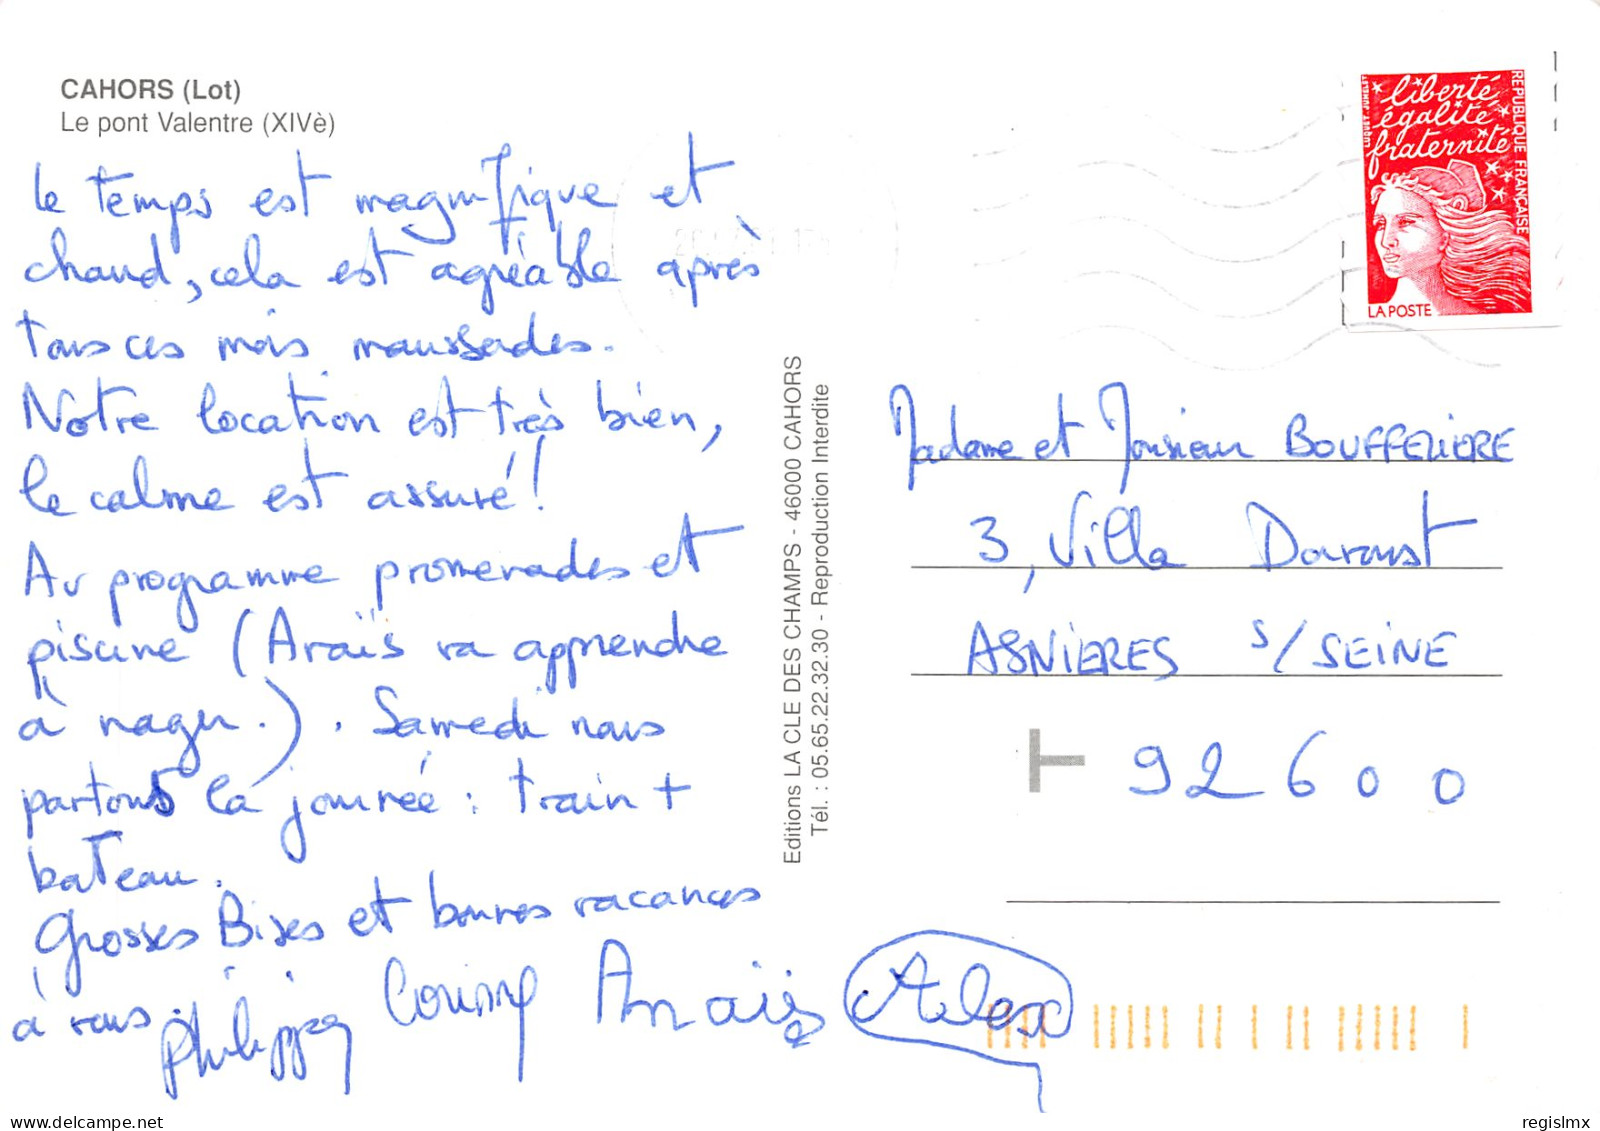 CAHORS (Lot)
Le pont Valentre (XIVè)
le temps est magnifique et
chaud, cela est agréable après
tous ces mois maussades.
Notre location est très bien,
le calme est assuré !
Au programme promenades et
piscine (Anaïs va apprendre
à nager.). Samedi nous
partons la journée : train +
bateau.
Grosses Bises et bonnes vacances
à vous.
Philippe Anaïs Alex
Editions LA CLE DES CHAMPS - 46000 CAHORS
Tél. : 05.65.22.32.30 - Reproduction Interdite
liberté
égalité
fraternité
REPUBLIQUE FRANÇAISE
LA POSTE
Madame et Monsieur
3, Villa
ASNIERES S/SEINE
92600
delcampe.net
regislmx